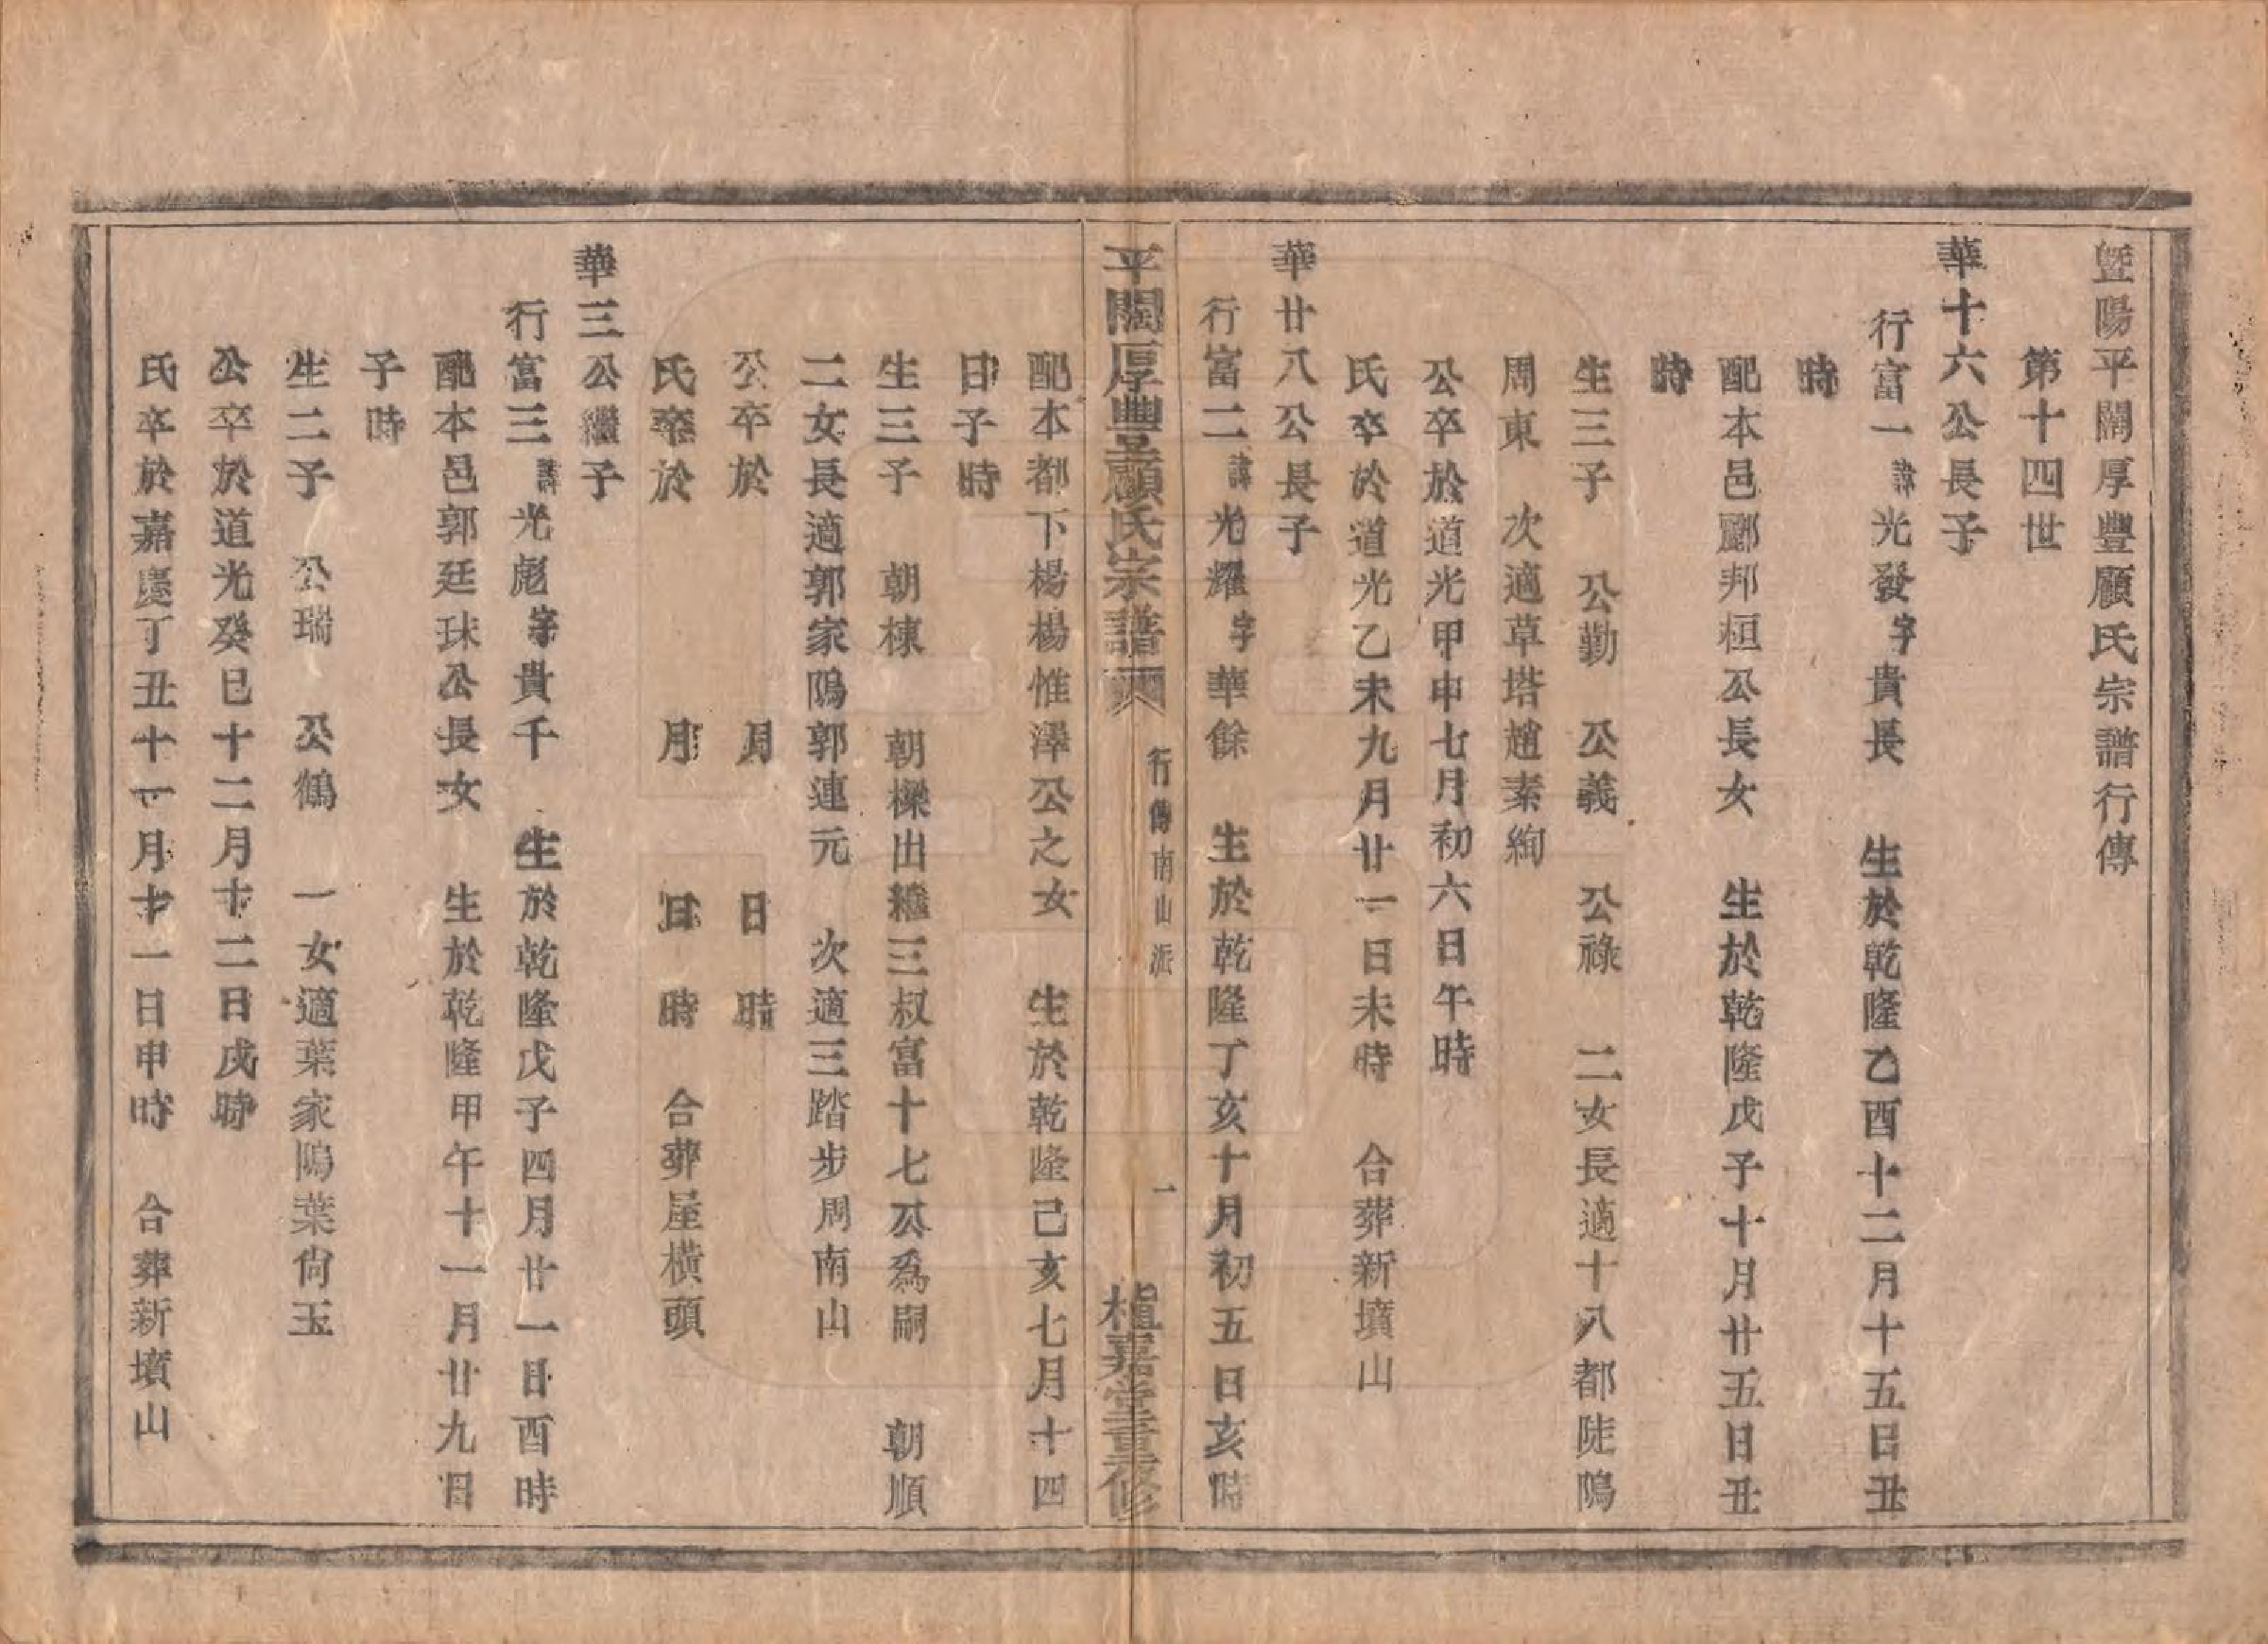 暨陽平闊厚豐顧氏宗譜行傳
第十四世
華十六公長子
行富一諱光發字貴長　生於乾隆乙酉十二月十五日丑
時
配本邑酈邦桓公長女　生於乾隆戊子十月廿五日丑
時
生三子　公勤　公義　公祿　二女長適十八都陡隖
周東　次適草塔趙素絢
公卒於道光甲申七月初六日午時
氏卒於道光乙未九月廿一日未時　合葬新墳山
華廿八公長子
行富二諱光耀字華餘　生於乾隆丁亥十月初五日亥時
平闊厚豐顧氏宗譜　行傳南山派　一　植嘉堂重修
配本都下楊楊惟澤公之女　生於乾隆己亥七月十四
日子時
生三子　朝棟　朝樑出繼三叔富十七公爲嗣　朝順
二女長適郭家隖郭連元　次適三踏步周南山
公卒於　月　日　時
氏卒於　月　日　時　合葬屋橫頭
華三公繼子
行富三諱光彪字貴千　生於乾隆戊子四月廿一日酉時
配本邑郭廷珠公長女　生於乾隆甲午十一月廿九日
子時
生二子　公瑞　公鶴　一女適葉家隖葉尙玉
公卒於道光癸巳十二月十二日戌時
氏卒於嘉慶丁丑十一月十一日申時　合葬新墳山